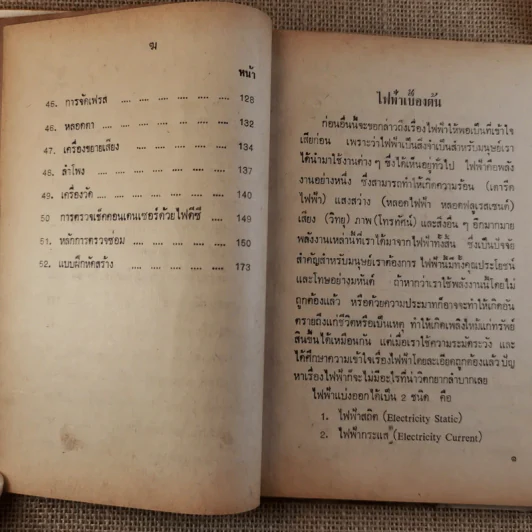 ฆ
หน้า
45. การจัดเฟรส .... .... .... .... .... .... 128
46. หลอดตา .... .... .... .... .... .... 132
47. เครื่องขยายเสียง .... .... .... .... .... 134
48. ลำโพง .... .... .... .... .... .... 137
49. เครื่องวัด .... .... .... .... .... .... 140
50 การตรวจเช็คคอนเดนเซอร์ด้วยไฟดีซี .... .... 149
51. หลักการตรวจซ่อม .... .... .... .... .... 150
52. แบบฝึกหัดสร้าง .... .... .... .... .... 173
ไฟฟ้าเบื้องต้น
ก่อนอื่นนี้จะขอกล่าวถึงเรื่องไฟฟ้าให้พอเป็นที่เข้าใจ
เสียก่อน เพราะว่าไฟฟ้าเป็นสิ่งจำเป็นสำหรับมนุษย์เรา
ได้นำมาใช้งานต่าง ๆ ซึ่งได้เห็นอยู่ทั่วไป ไฟฟ้าคือพลัง
งานอย่างหนึ่ง ซึ่งสามารถทำให้เกิดความร้อน (เตารีด
ไฟฟ้า) แสงสว่าง (หลอดไฟฟ้า หลอดฟลูเรสเซนต์)
เสียง (วิทยุ) ภาพ (โทรทัศน์) และสิ่งอื่น ๆ อีกมากมาย
พลังงานเหล่านี้ที่เราได้มาจากไฟฟ้าทั้งสิ้น ซึ่งเป็นปัจจัย
สำคัญสำหรับมนุษย์เราต้องการ ไฟฟ้านี้มีทั้งคุณประโยชน์
และโทษอย่างมหันต์ ถ้าหากว่าเราใช้พลังงานนี้โดยไม่
ถูกต้องแล้ว หรือด้วยความประมาทก็อาจจะทำให้เกิดอัน
ตรายถึงแก่ชีวิตหรือเป็นเหตุ ทำให้เกิดเพลิงไหม้แก่ทรัพย์
สินขึ้นได้เหมือนกัน แต่เมื่อเราใช้ความระมัดระวัง และ
ได้ศึกษาความเข้าใจเรื่องไฟฟ้าโดยละเอียดถูกต้องแล้ว ปัญ
หาเรื่องไฟฟ้าก็จะไม่มีอะไรที่น่าวิตกยากลำบากเลย
ไฟฟ้าแบ่งออกได้เป็น 2 ชนิด คือ
1. ไฟฟ้าสถิต (Electricity Static)
2. ไฟฟ้ากระแส (Electricity Current)
๑